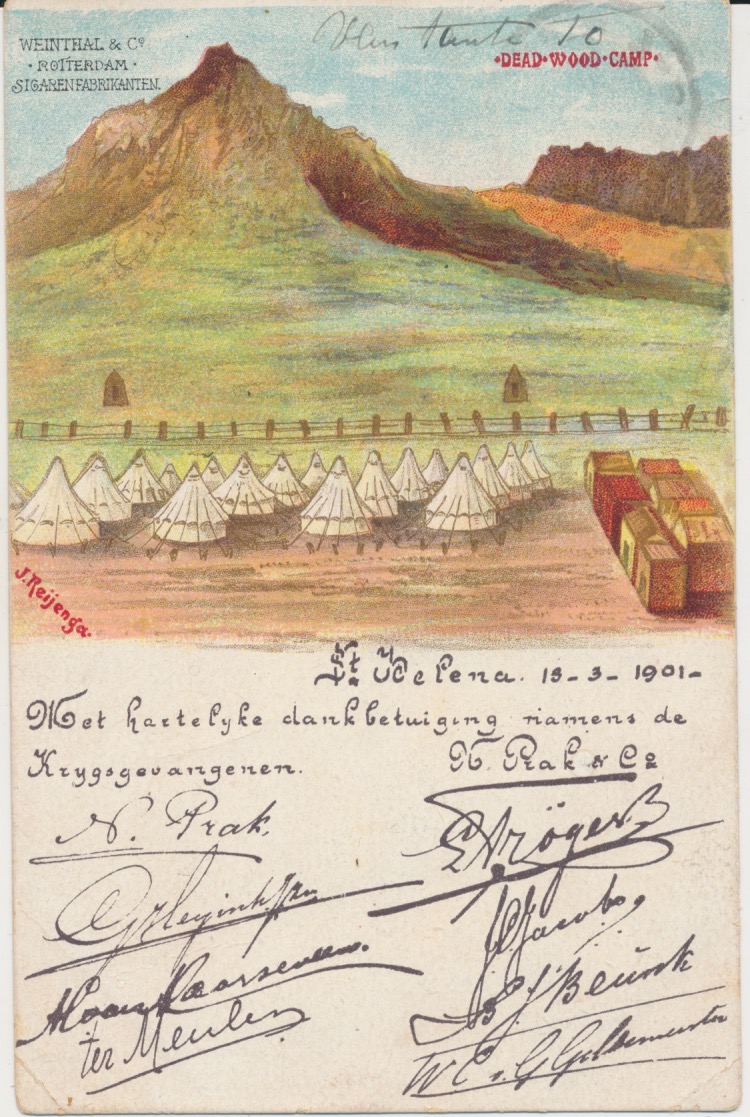 WEINTHAL & Co
• ROTTERDAM •
SIGARENFABRIKANTEN.
Van Tante To
•DEAD•WOOD•CAMP•
J. Reijenga.
St Helena. 15-3-1901-
Met hartelyke dankbetuiging namens de
Krygsgevangenen. N. Prak & Co
N. Prak.
E Kröger
J Jacobs
ter Meulen
B J Beunk
W C v. G Geldemeister